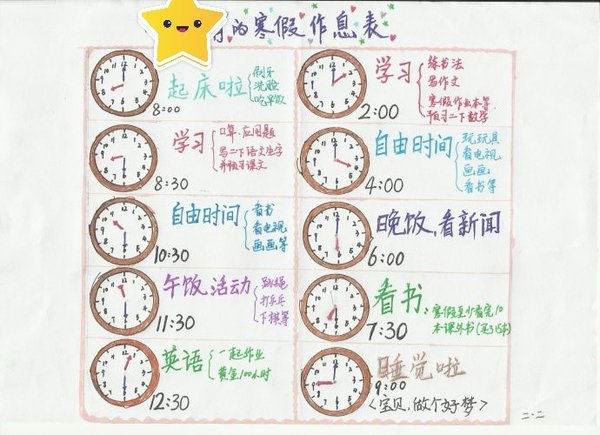 的寒假作息表
起床啦
刷牙
洗脸
吃早饭
8:00
学习
口算、应用题
写二下语文生字
并预习课文
8:30
自由时间
看书
看电视
画画等
10:30
午饭,活动
跳绳
打乒乓
下棋等
11:30
英语
一起作业
黄金100小时
12:30
学习
练书法
写作文
寒假作业本等
预习二下数学
2:00
自由时间
玩玩具
看电视
画画
看书等
4:00
晚饭,看新闻
6:00
看书
寒假至少看完10
本课外书
7:30
睡觉啦
9:00
<宝贝,做个好梦>
二·二